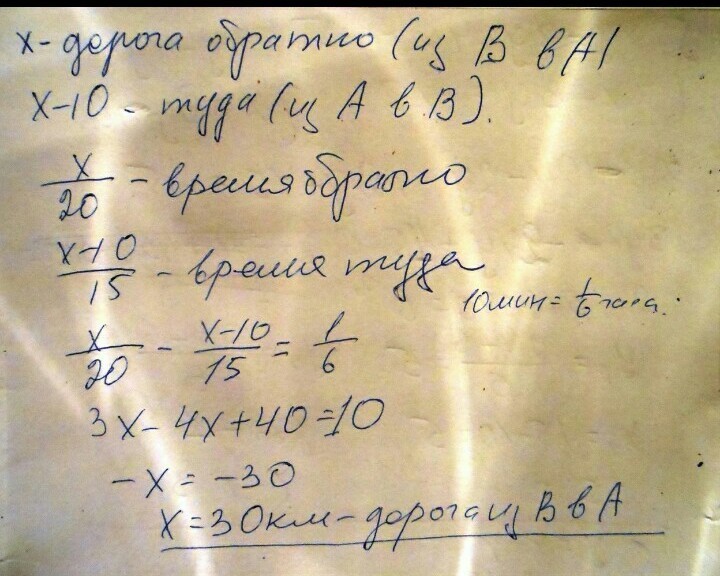 x - дорога обратно (из В в А)
x-10 - туда (из А в В).
x/20 - время обратно
x-10/15 - время туда
10мин = 1/6 часа.
x/20 - x-10/15 = 1/6
3x - 4x + 40 = 10
-x = -30
x = 30км - дорога из В в А